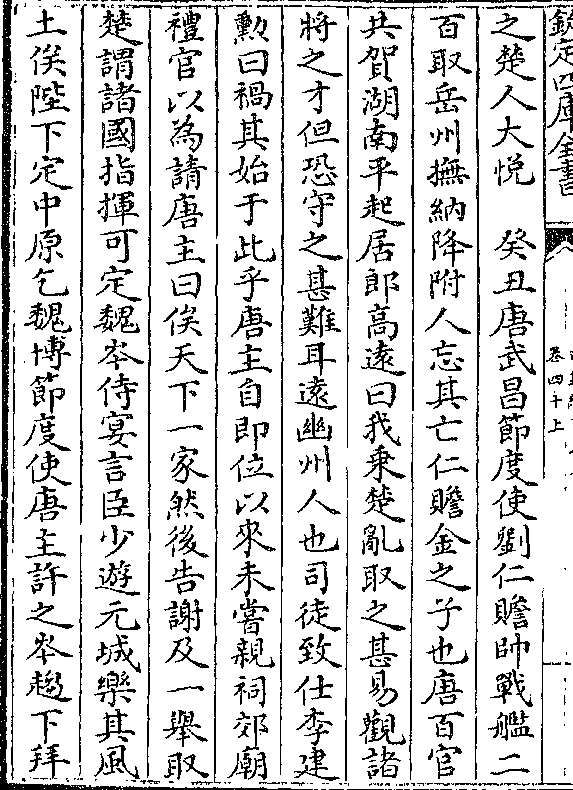 欽定四庫全書
卷四十上
之楚人大悦　癸丑唐武昌節度使劉仁贍帥戰艦二
百取岳州撫納降附人忘其亡仁贍金之子也唐百官
共賀湖南平起居郎高遠曰我乘楚亂取之甚易觀諸
將之才但恐守之甚難耳遠幽州人也司徒致仕李建
勲曰禍其始于此乎唐主自即位以來未嘗親祠郊廟
禮官以為請唐主曰俟天下一家然後告謝及一舉取
楚謂諸國指揮可定魏岑侍宴言臣少遊元城樂其風
土俟陛下定中原乞魏博節度使唐主許之岑趨下拜